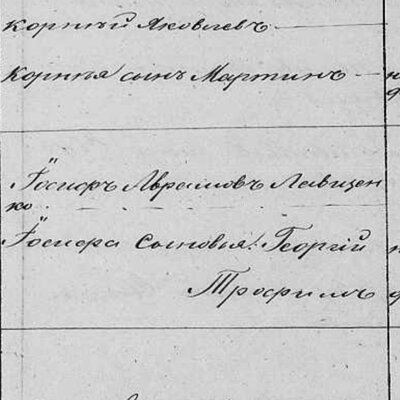 Корнѣй Яковлевъ
Корнѣя сынъ Мартинъ
Іосифъ Аврамовъ Лавицен
ко
Іосифа сыновья: Георгій
Трофимъ